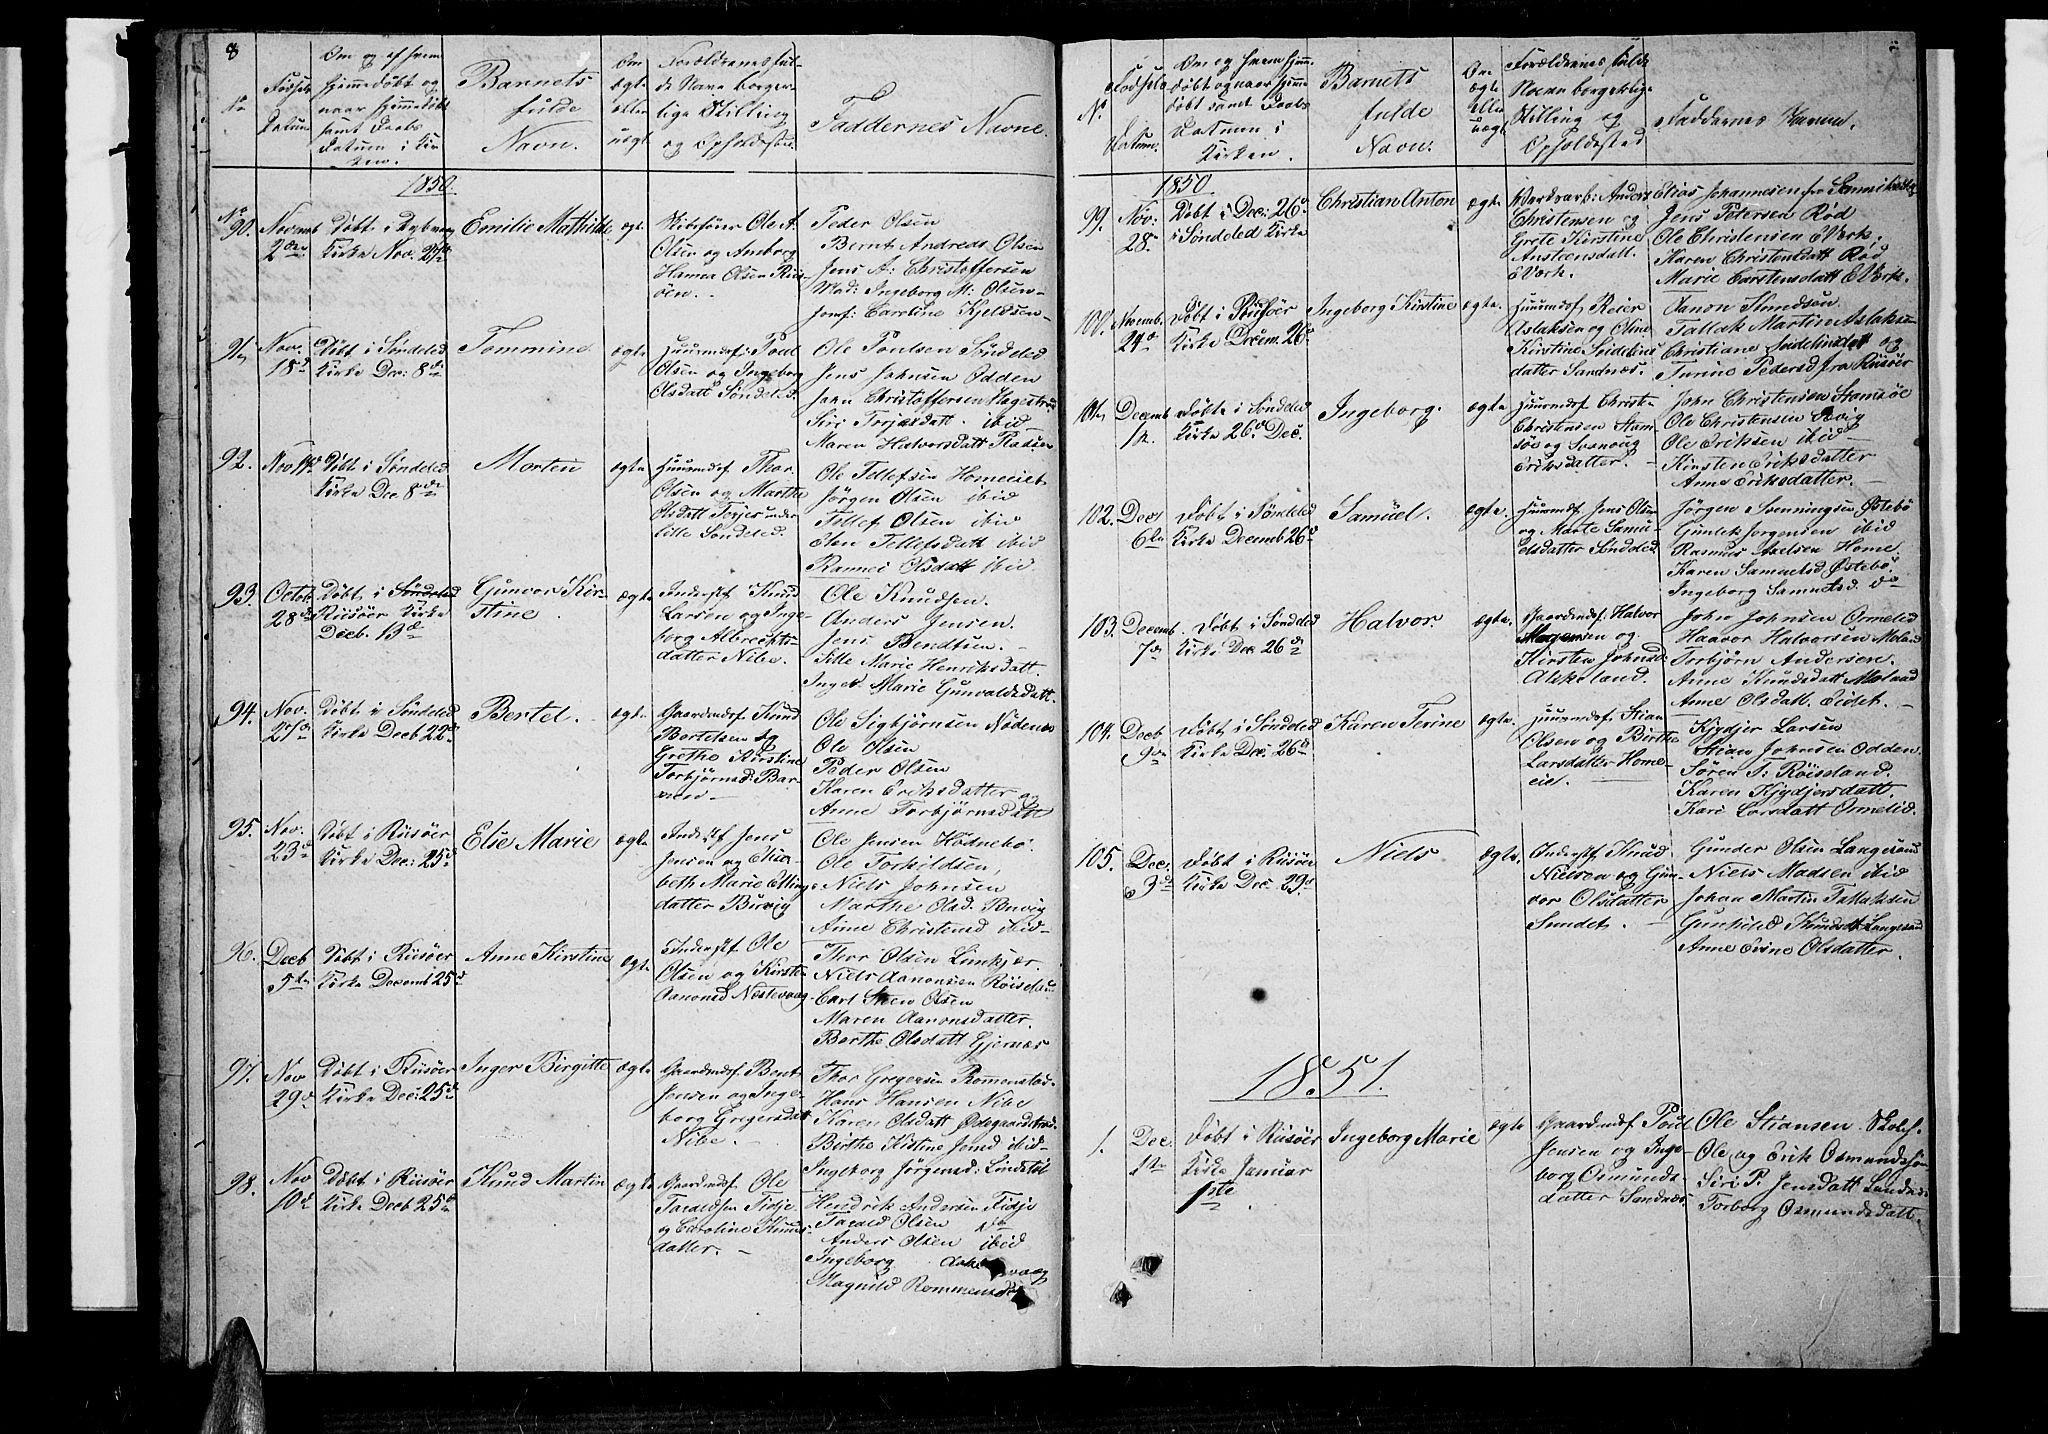 8
No
Fødsels
Datum
Om og af hvem
hjemmedøbt og
naar hjemmedøbt
samt Daabs
Datum i Kir
ken.
Barnets
fulde
Navn.
Om
ægte
eller
uægt
Forældrenes ful-
de Navn borger-
lige Stilling
og Opholdssted
Faddernes Navne.
1850.
No
90.
Novemb
2den
Døbt i
Kirke Nov.
Emilie Mathilde
ægt
Ole A.
Olsen og
Hanna Olsen Riis-
öen.
Peder Olsen
Bernt Andreas Olsen
Jens A: Christoffersen
Mad: Ingeborg M: Olsen
Jomf: Caroline Kjeldsen
91
Nov.
18d
Døbt i Søndeled
Kirke Dec: 8de
Tommine
ægte
Huusmdf: Poul
Olsen og Ingeborg
Olsdatt Søndeled.
Ole Poulsen Søndeled
Jens Johnsen Odden
John Christoffersen Hagestrøe
Siri Terjesdatt. ibid
Maren Halvorsdatt
92.
Nov
Døbt i Søndeled
Kirke Dec 8de
Morten
ægte
Huusmdf. Thor
Olsen og Marthe
Olsdatt
lille Søndeled.
Ole Tellefsen Homeiet
Jørgen Olsen ibid
Tellef Olsen ibid
Tellefsdatt ibid
Olsdatt ibid
93.
Octob
28d
Døbt i Søndeled
Riisöer Kirke
Decb. 13d
Gunvor Kir-
stine.
ægte
Inderst Knud
Larsen og Inge-
borg Albrechts-
datter Nibe.
Ole Knudsen.
Anders Jensen.
Jens Bendtsen.
Sille Marie Henriksdatt.
Inger Marie Gunvaldsdatt.
94.
Nov.
27d
Døbt i Søndeled
Kirke Decb 22d
Bertel.
ægte
Gaardmdf. Knud
Bertelsen og
Grethe Kirstine
Torbjørnsd: Bar-
men
Ole Sigbjørnsen
Ole Olsen
Peder Olsen
Karen Eriksdatter og
Anne Torbjørnsdatt
95.
Nov.
23d
Døbt i Riisöer
Kirke Dec: 25d
Else Marie
ægte
Inderst Jens
Jensen og Elisa-
beth Marie Elling
datter Buvig
Ole Jensen Hødnebø.
Ole Torkildsen,
Niels Johnsen
Marthe Olsd. Buvig
Anne Christensd ibid
96.
Decb
5te
Døbt i Riisöer
Kirke Decemb 25d
Anne Kirstine
ægte
Inderst. Ole
Olsen og Kirsten
Aanonsd Nestevaag
Thor Olsen Limkjær.
Niels Aanonsen Röiseland
Carl Olsen
Maren Aanonsdatter.
Berthe Olsdatt Gjernæs
97.
Nov
29d
Døbt i Riisöer
Kirke Dec: 25d
Inger Birgitte
ægte
Gaardmdf. Bent
Jensen og Inge-
borg Gregersdatt
Nibe.
Thor Gregersen
Hans Hansen Nibe
Karen Olsdatt
Birthe Kistine Jensd ibid
Ingeborg Jörgensd: Lindstöl
98.
Nov
10d
Døbt i Riisöer
Kirke Decb 25d
Knud Martin
ægte
Gaardmdf. Ole
Taraldsen Fidje
og Caroline Knuds-
datter.
Hendrik Andersen Fidje
Tarald Olsen do
Anders Olsen ibid
Ingeborg
Magnild
No
Fødsels
Datum.
Om og hvem hjem-
døbt og naar hjemme
døbt samt Daabs
Datum i
Kirken.
Barnets
fulde
Navn.
Om
ægte
eller
uægt
Forældrenes fulde
Navn borgerlige
Stilling og
Opholdssted
Faddernes Navne.
1850
99.
Nov.
28d
Døbt i Dec: 26d
i Søndeled Kirke
Christian Anton
ægte
Anders
Christensen og
Grete Kirstine
Anstensdatt.
EVærk.
Elias Johannesen fra
Jens Petersen Rød
Ole Christensen EVærk.
Karen Christensdatt Rød
Marie Carstensdatt EVærk.
100.
Novemb.
29d
Døbt i Riisöer
Kirke Decem. 26d
Ingeborg Kirstine
ægte.
Huusmdf. Reier
Aslaksen og Oline
Kirstine
datter Sandnæs.
Aanon Knudsen
Tallak Martin Aslaksen
Christiane og
Turine Pedersd fra Riisöer
101
Decemb
Døbt i Søndeled
Kirke 26d Dec.
Ingeborg.
ægte
Huusmdf Christen
Christensen Stam-
söe og
Eriksdatter.
John Christensen Stamsöe
Ole Christensen
Ole Eriksen ibid
Kirsten Eriksdatter
Anne Eriksdatter.
102.
Dec
6te
Døbt i Søndeled
Kirke Decemb 26d
Samüel.
ægte.
Huusmdf. Jens Olsen
og Marte Samu-
elsdatter Søndeled
Jörgen Svenningsen Østebö
Gunlek Jorgensen ibid
Rasmus Axelsen Home
Karen Samuelsd Østebö
Ingeborg Samuelsd. do
103.
Decemb
7de
Døbt i Søndeled
Kirke Dec 26d
Halvor.
ægte
Gaardmdf. Halvor
og
Kirsten Johnsd
John Johnsen Ormelid
Haavor Halvorsen Moland
Torbjörn Andersen.
Anne Knudsdatt Moland
Anne Olsdatt. Eidet.
104.
Decb
9de
Døbt i Søndeled
Kirke Dec: 26d
Karen Terine
ægte.
Huusmdf. Stian
Olsen og Birthe
Larsdatter Home-
eie.
Kjydjer Larsen
Stian Johnsen Odden.
Søren T: Röiseland.
Karen Kjydjersdatt.
Kari Larsdatt Ormelid.
105.
Dec:
3d
Døbt i Riisöer
Kirke Dec. 29d
Niels
ægte.
Inderst Knud
Nielsen og Gun-
vor Olsdatter
Sundet.
Gunder Olsen Langesund
Niels Madsen ibid
Johan Martin Tallaksen
Gunhild Knudsdatt Langesund
Anne Olsdatter.
1851.
1.
Dec
1te
Døbt i Riisöer
Kirke Januar
1ste
Ingeborg Marie
ægte
Gaardmdf Poul
Jensen og Inge-
borg Osmunds-
datter Sandnæs
Ole Stiansen
Ole og Erik Osmundsön
Siri P. Jensdatt Sandnæs
Torborg Osmundsdatt.